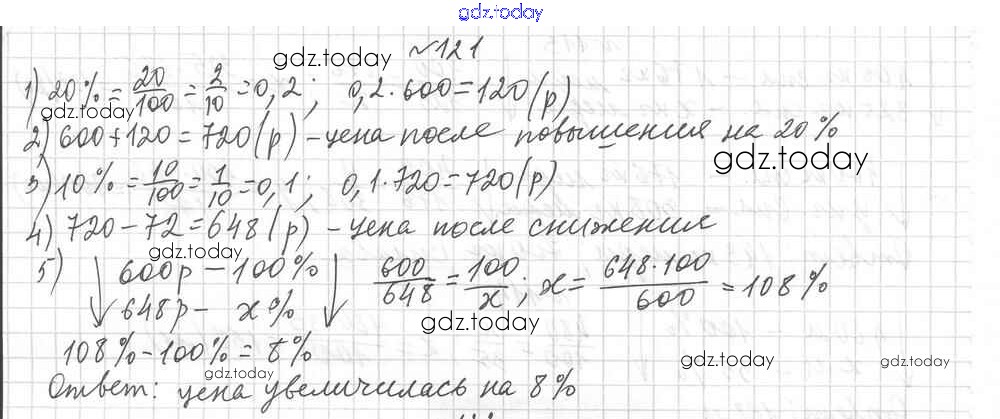 gdz.today
№121
gdz.today
1) 20% = 20/100 = 2/10 = 0,2; 0,2·600=120(р)
gdz.today
2) 600+120=720(р) – цена после повышения на 20%
gdz.today
3) 10% = 10/100 = 1/10 = 0,1; 0,1·720=720(р)
4) 720-72=648(р) – цена после снижения
gdz.today
5) ↓ 600р – 100% ↓ 600/648 = 100/x; x = 648·100/600 = 108%
648р – x%
gdz.today
108%-100%=8%
gdz.today gdz.today
gdz.today
Ответ: цена увеличилась на 8%